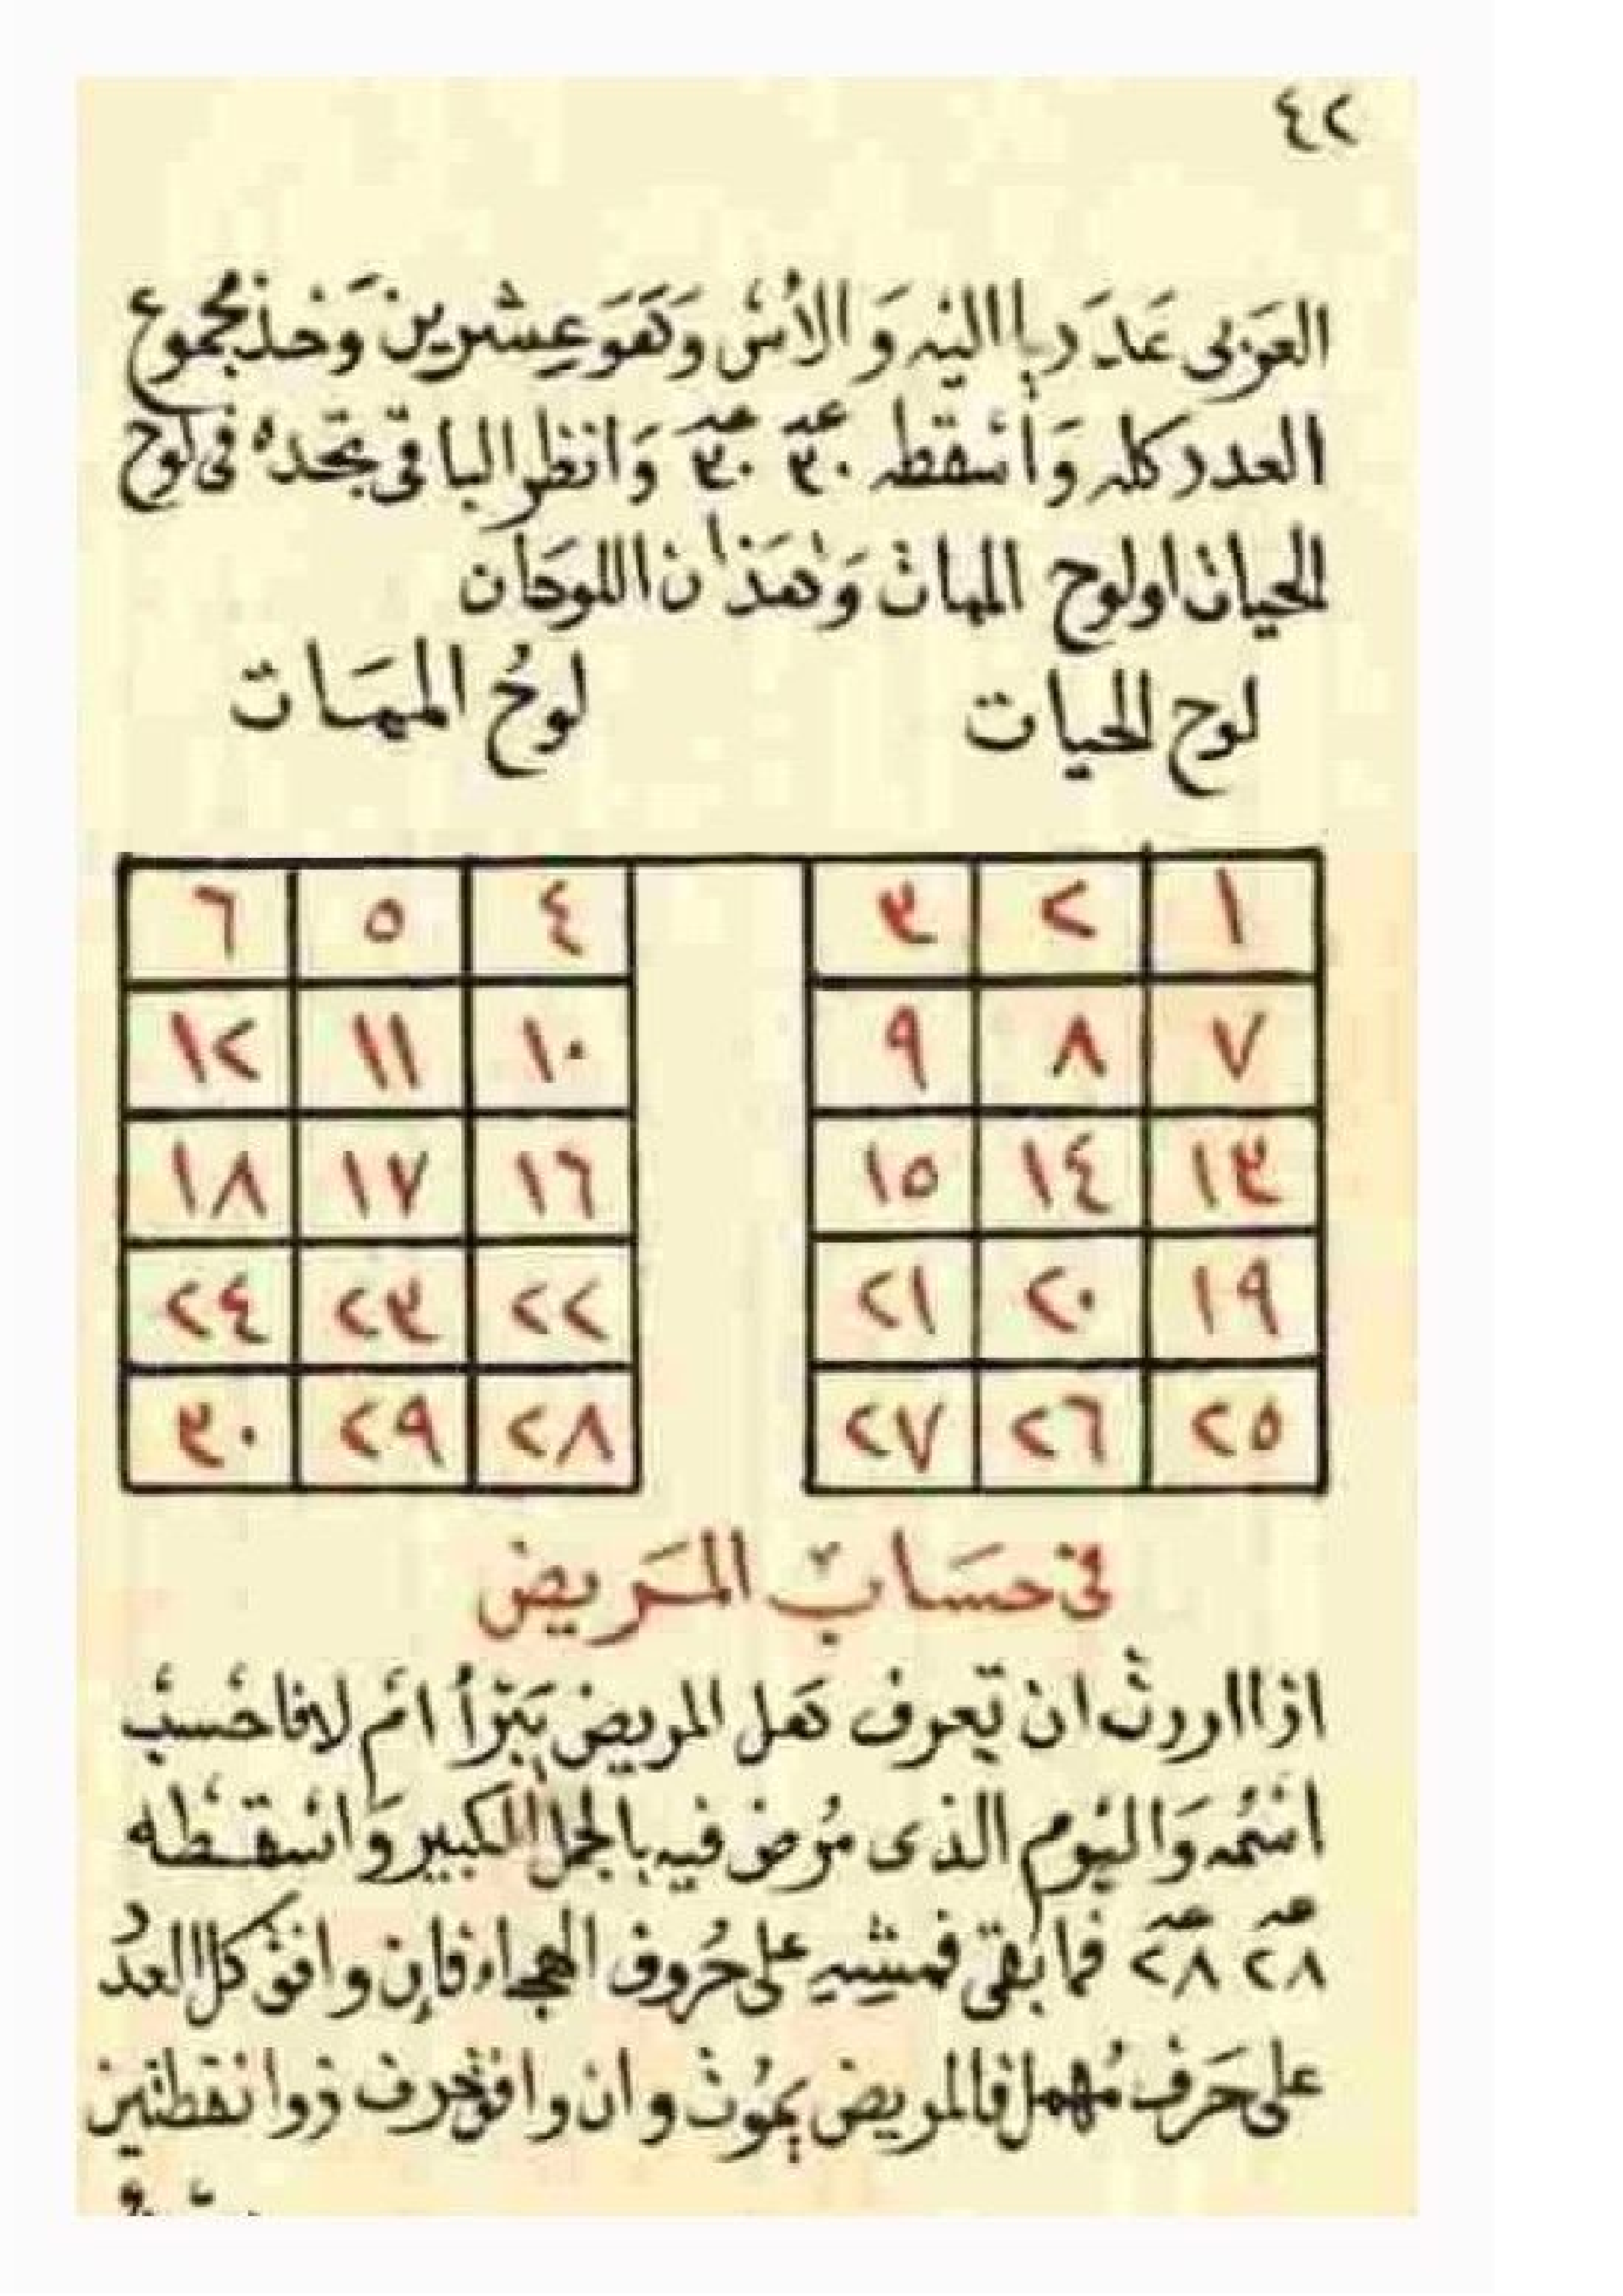 ٤٢
العربى عدد رباالیه والأس وهو عشرين وخذ مجموع
العدد كله وأسقطه ٣٠ ٣٠ وانظر الباقى تجده فى لوح
الحيات اولوح الممات وهذان اللوحان
لوح الحيات
لوح الممات
١ ٢ ٣ ٤ ٥ ٦
٧ ٨ ٩ ١٠ ١١ ١٢
١٣ ١٤ ١٥ ١٦ ١٧ ١٨
١٩ ٢٠ ٢١ ٢٢ ٢٣ ٢٤
٢٥ ٢٦ ٢٧ ٢٨ ٢٩ ٣٠
فى حساب المريض
اذا اردت ان تعرف هل المريض يبرأ ام لا فاحسب
اسمه واليوم الذى مرض فيه بالجمل الكبير واسقطه
٢٨ ٢٨ فما بقى فمشيه على حروف الهجاء فإن وافق كل العدد
على حرف مهمل فالمريض يموت وان وافق حرف ذوا نقطتين